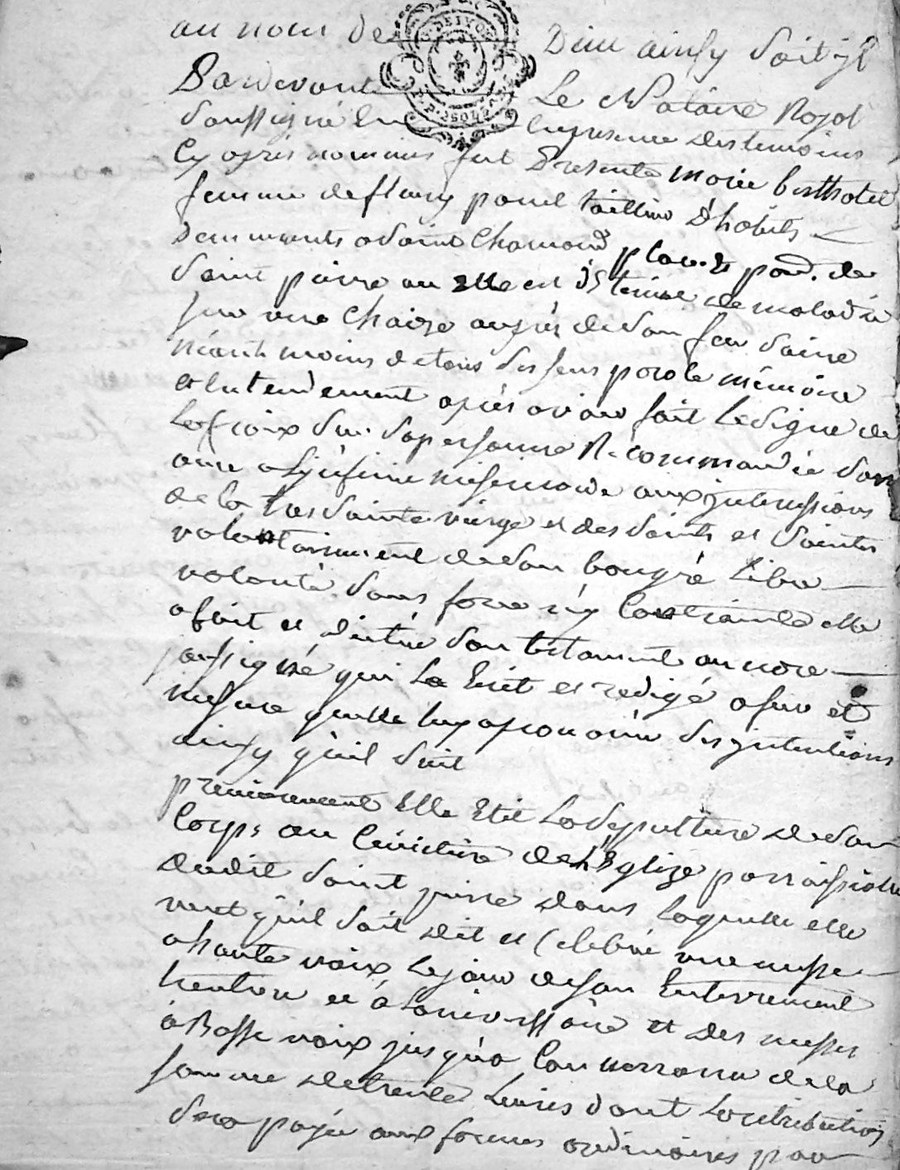 au nom de Dieu ainsy soit jl
Pardevant Le Notaire Royal
soussigné En la presence des temoins
Cy apres nommes fut Presente marie berthoter
femme de fleury tailleur d'habits
demeurants a Saint Chamond place et par. de
Saint pierre ou elle est detenue de maladie
sur une Chaize aupres de son feu saine
neant moins de tous ses sens parole mémoire
et Entendement apres avoir fait Le Signe de
La Croix sur sa personne Recommandée son
ame a Sa jnfinie misericorde aux jntercessions
de la tres Sainte vierge et des Saints et Saintes
volontairement de son bon gré Libre
volonté sans force n'y Contrainte elle
a fait et dicté son testament au no.re
soussigné qui La Ecrit et redigé a fur et
mesure quelle luy a prononcé ses jntentions
ainsy qu'il suit
premierement Elle Elit La Sepulture de son
Corps au Cimetiere de L'Eglize parroissialle
dudit Saint pierre dans Laquelle elle
veut qu'il soit dit et Celebré une messe
a haute voix Le jour de son Enterrement
huitaine et a Laniversaire et des messes
à Basse voix jusqu'a Concurrance de la
somme de trente Livres dont La retribution
sera payée aux formes ordinaires par